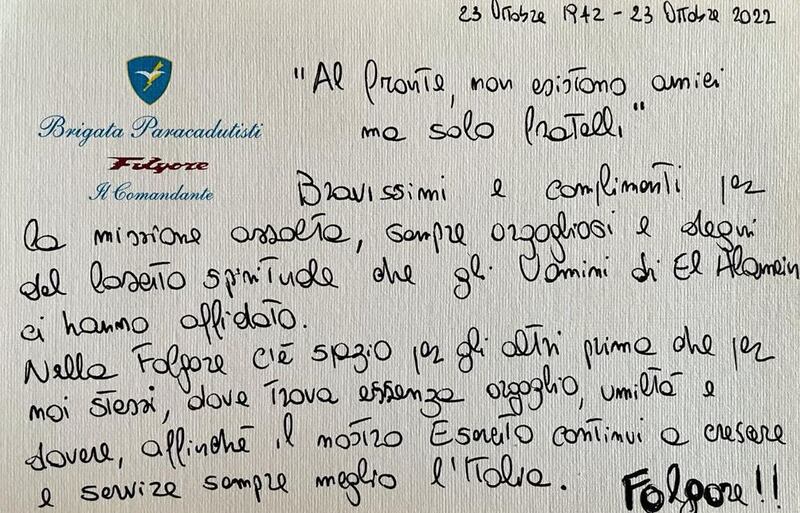 23 Ottobre 1942 - 23 Ottobre 2022
"Al fronte, non esistono amici
ma solo fratelli"
Brigata Paracadutisti
Folgore
Il Comandante
Bravissimi e complimenti per
la missione assolta, sempre orgogliosi e degni
del lascito spirituale che gli Uomini di El Alamein
ci hanno affidato.
Nella Folgore c'è spazio per gli altri prima che per
noi stessi, dove trova essenza orgoglio, umiltà e
dovere, affinché il nostro Esercito continui a crescere
e servire sempre meglio l'Italia. Folgore!!